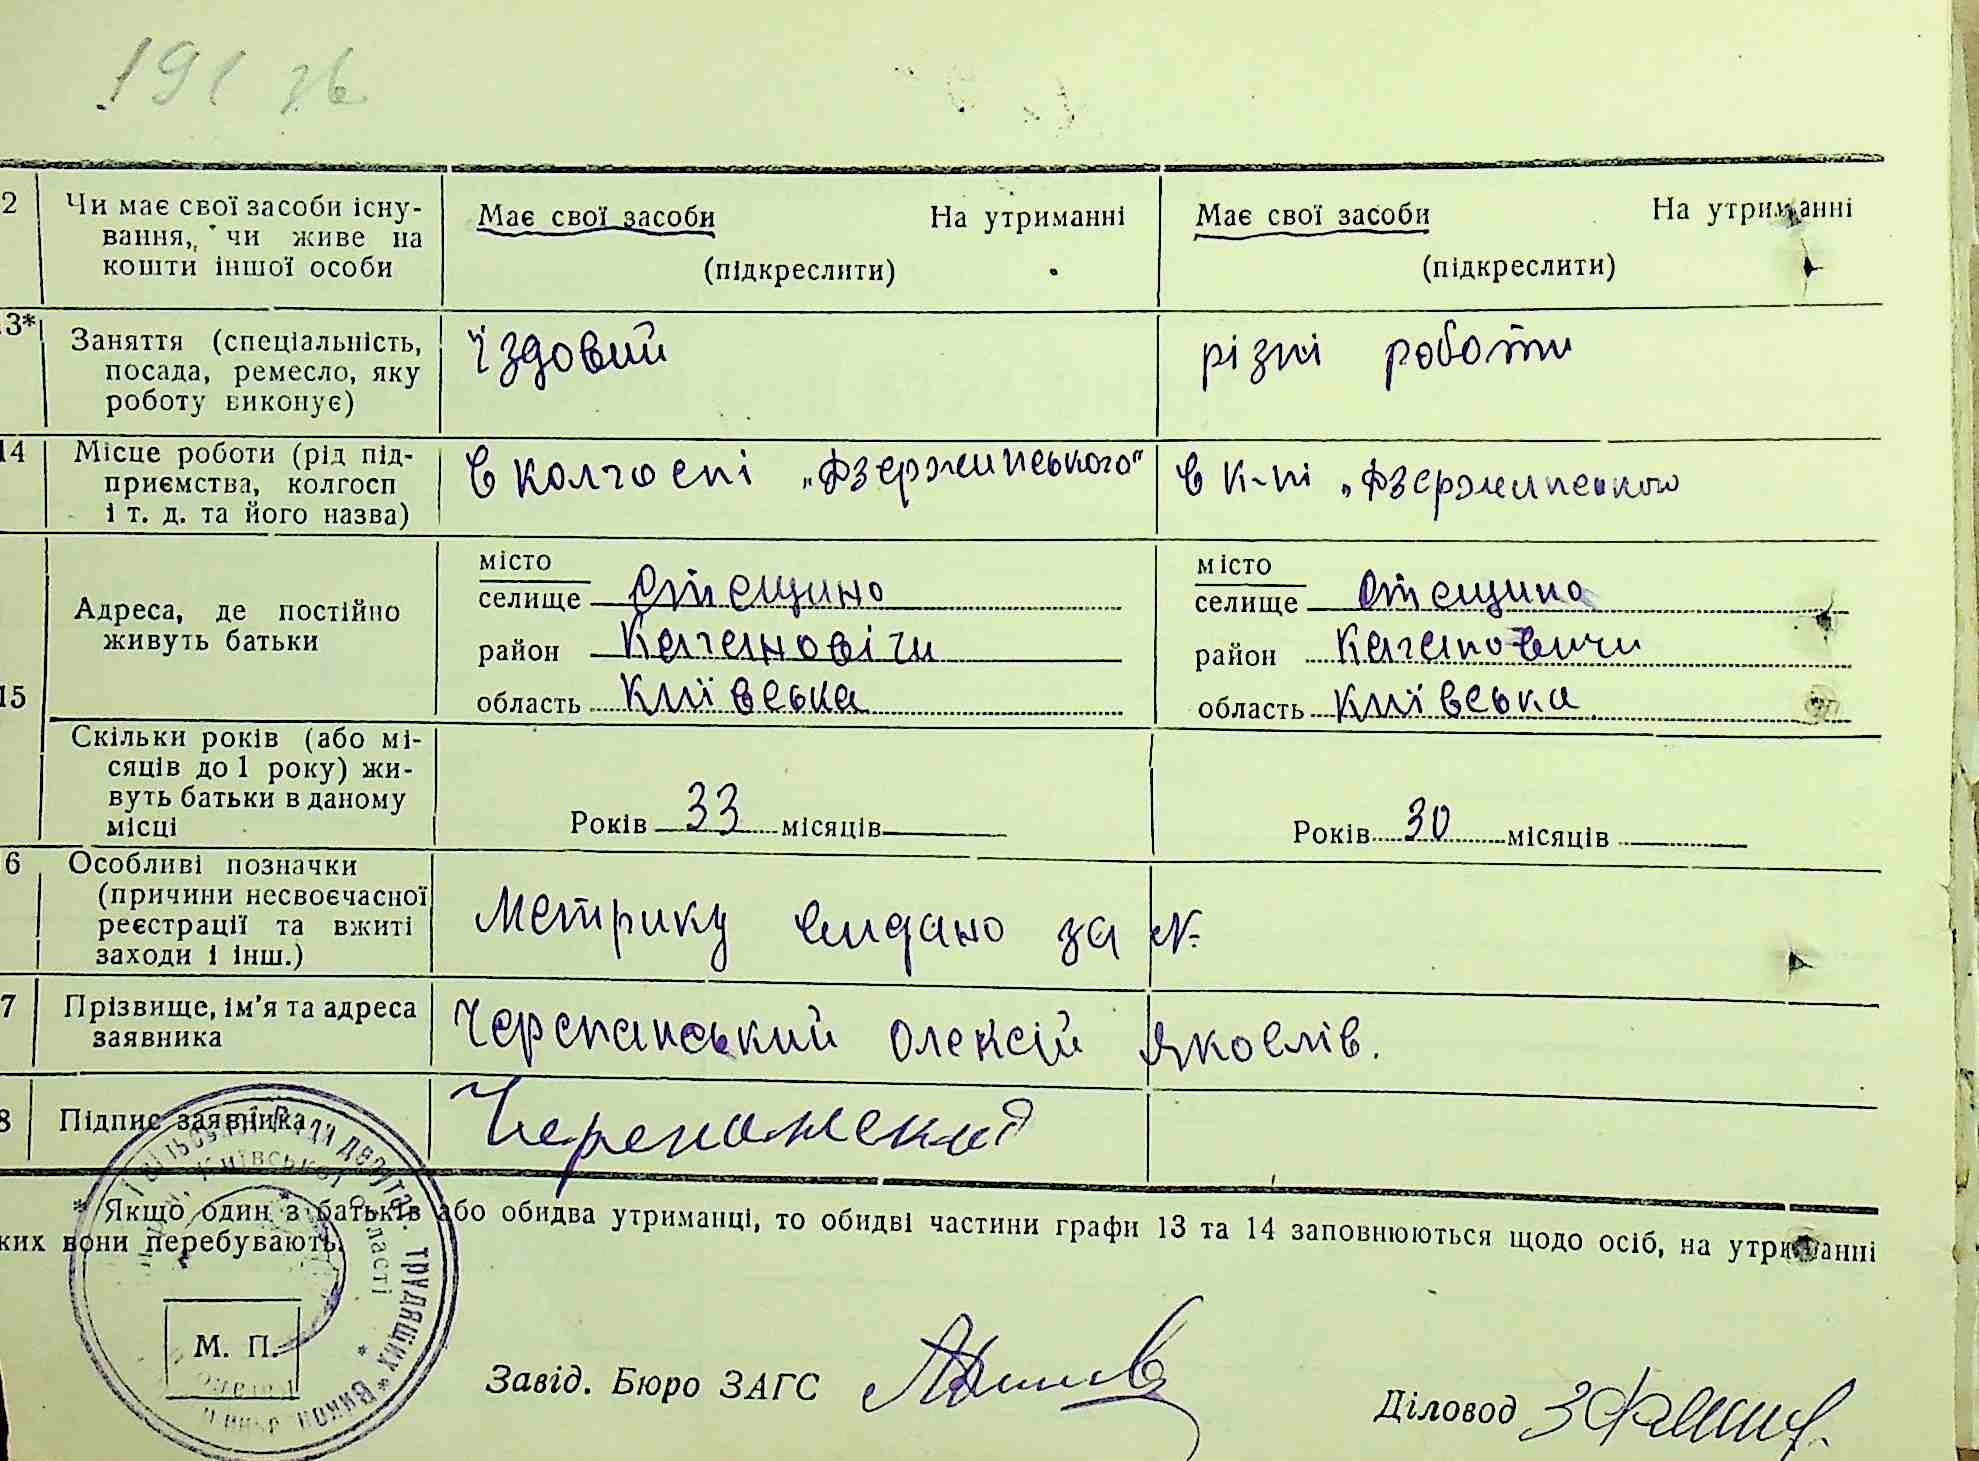 191 зв
2 Чи має свої засоби існу-
вання, чи живе на
кошти іншої особи
Має свої засоби На утриманні
(підкреслити)
Має свої засоби На утриманні
(підкреслити)
13* Заняття (спеціальність,
посада, ремесло, яку
роботу виконує)
їздовий
різні роботи
14 Місце роботи (рід під-
приємства, колгосп
і т. д. та його назва)
в колгоспі „Дзержинського“
в к-пі „Дзержинського
15 Адреса, де постійно
живуть батьки
місто
селище Стещино
район Кагановічи
область Київська
місто
селище Стещина
район Кагановичи
область Київська
Скільки років (або мі-
сяців до 1 року) жи-
вуть батьки в даному
місці
Років 33 місяців
Років 30 місяців
6 Особливі позначки
(причини несвоєчасної
реєстрації та вжиті
заходи і інш.)
Метрику видано за №
7 Прізвище, ім’я та адреса
заявника
Черепанський Олексій Яковлів.
8 Підпис заявника
* Якщо один з батьків або обидва утриманці, то обидві частини графи 13 та 14 заповнюються щодо осіб, на утриманні
ких вони перебувають.
Ради депутат. трудящих * Викон
Київської області
М. П.
Завід. Бюро ЗАГС
Діловод